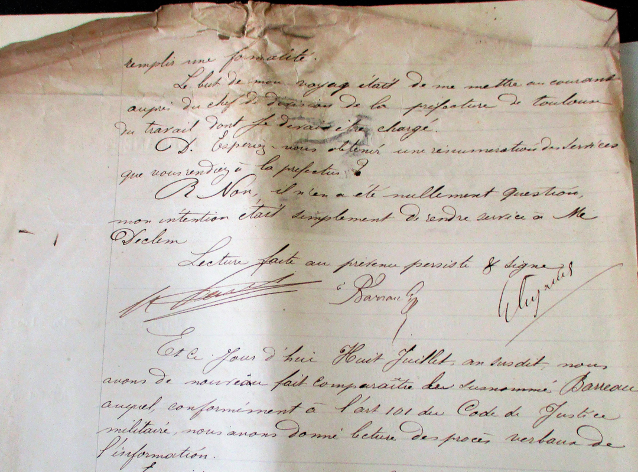 remplis une formalité.
Le but de mon voyag était de me mettre au courant
auprè du chef de division de la préfecture de toulouse
du travail dont je devais être chargé.
D. Esperiez-vous obtenir une rénumeration des services
que vous rendiez à la prefecture ?
R Non, il n'en a été nullement question,
mon intention était simplement d rendre service à Me
Declem
Lecture faite au prévenu persiste & signe
Barreau
Et ce jour d'hui Huit Juillet, an susdit, nous
avons de nouveau fait comparaître le susnommé Barreau
auquel, conformément à l'art 101 du Code de Justice
militaire, nous avons donné lecture des procès verbaux de
l'information.